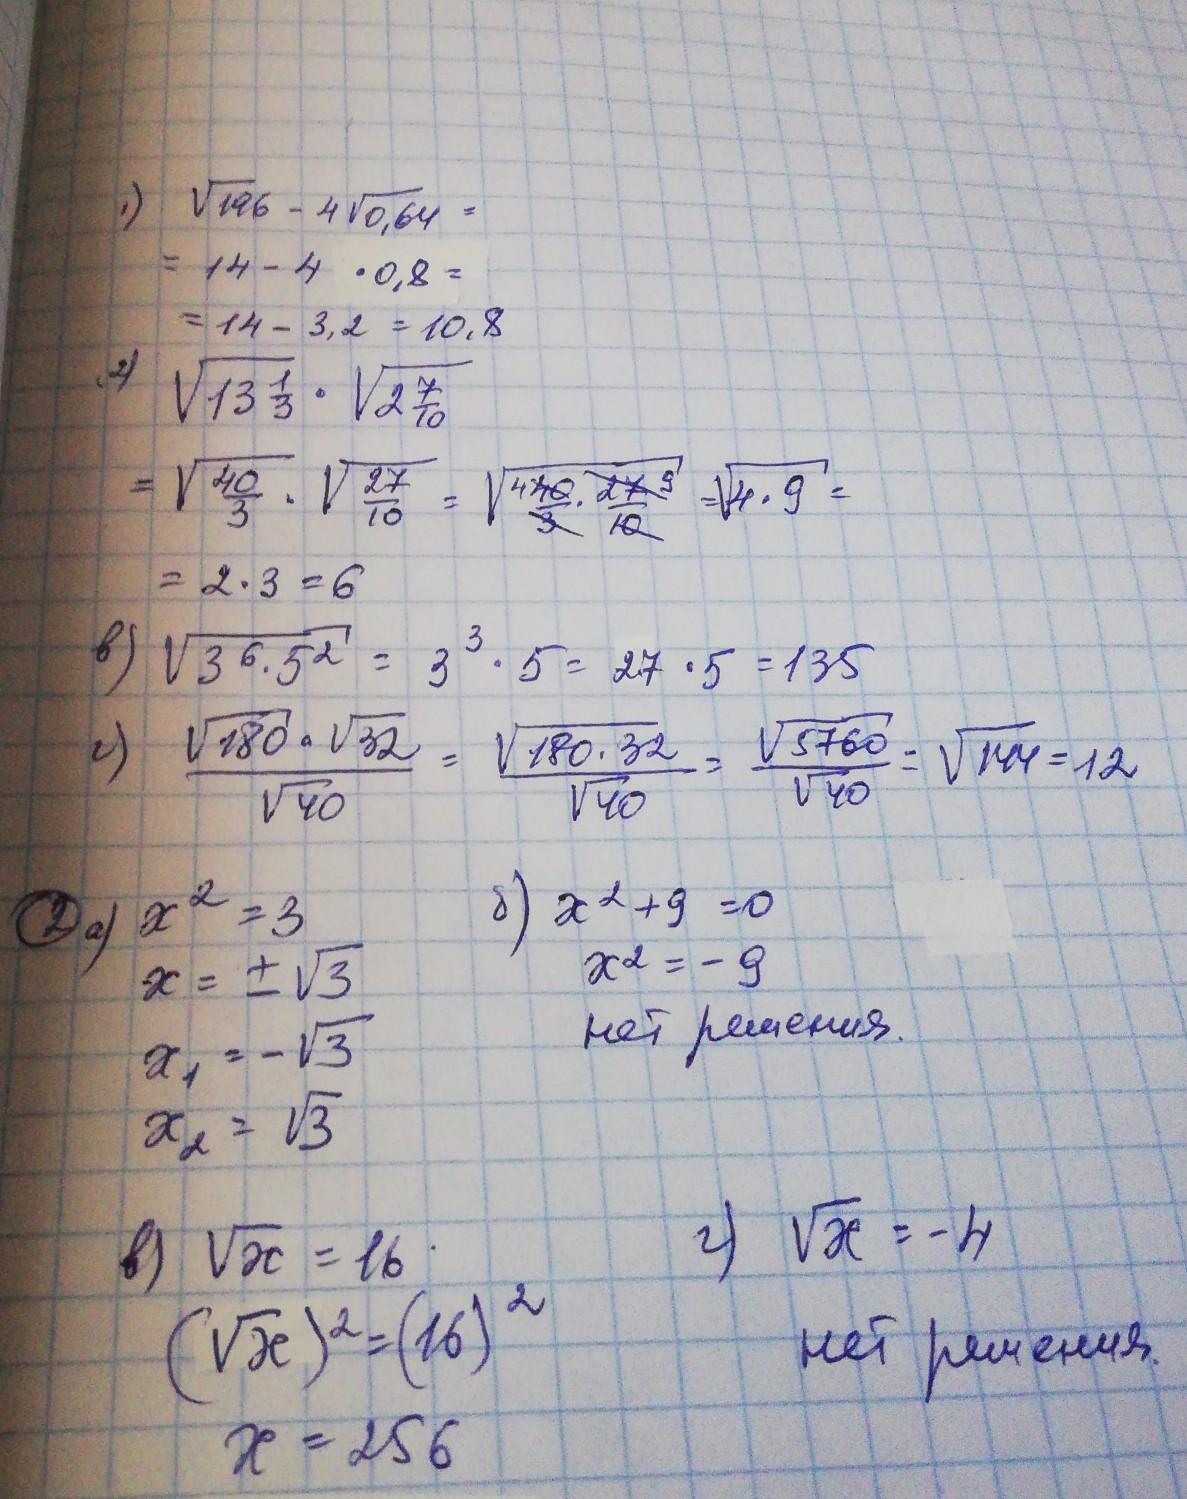 1) √196 - 4√0,64 =
= 14 - 4 · 0,8 =
= 14 - 3,2 = 10,8
2) √13 1/3 · √2 7/10
= √40/3 · √27/10 = √4 40/3 · 27 9/10 = √4·9 =
= 2·3 = 6
в) √3⁶·5² = 3³·5 = 27·5 = 135
г) √180·√32/√40 = √180·32/√40 = √5760/√40 = √144 = 12
2 а) x² = 3
x = ±√3
x₁ = -√3
x₂ = √3
б) x² + 9 = 0
x² = -9
нет решения.
в) √x = 16
(√x)² = (16)²
x = 256
г) √x = -4
нет решения.